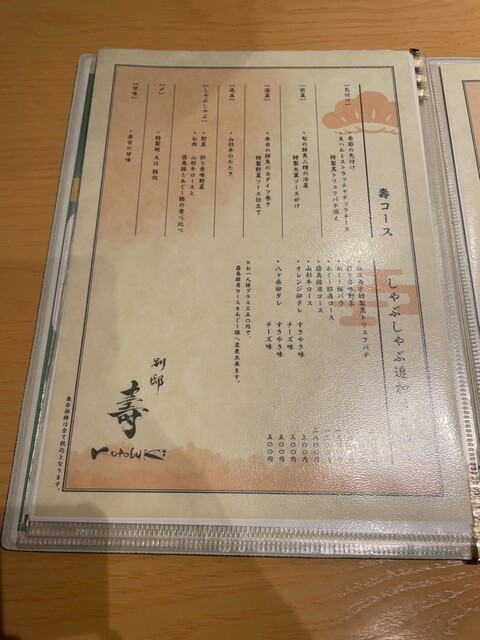 壽コース
【先付け】
・季節の先付け
・生ハムとストラッチャテッラチーズ
特製黒トリュフバテ添え
【前菜】
・旬の鮮魚二種の冷菜
特製大葉ソースがけ
【温菜】
・本日の鮮魚のカダイフ巻き
特製野菜ソース仕立て
【逸品】
・山形牛のたたき
【しゃぶしゃぶ】
・野菜 彩り香味野菜
・お肉 山形牛ロースと
霧島豚とあぐー豚の食べ比べ
【〆】
・特製麺 又は 雑炊
【甘味】
・本日の甘味
しゃぶしゃぶ追加
特製黒トリュフバテ
・彩り香味野菜
・あぐー豚バラ
・あぐー豚肩ロース
・霧島豚肩ロース
・山形牛ロース
・オレンジ卵ダレ すきやき味 三〇〇円
チーズ味 五〇〇円
・八ヶ岳卵ダレ すきやき味 三〇〇円
チーズ味 五〇〇円
※お一人様プラス三五〇円で、
霧島豚肩ロースをあぐー豚へ変更出来ます。
別邸
壽
Kotobuki
表示価格は全て税込となります。